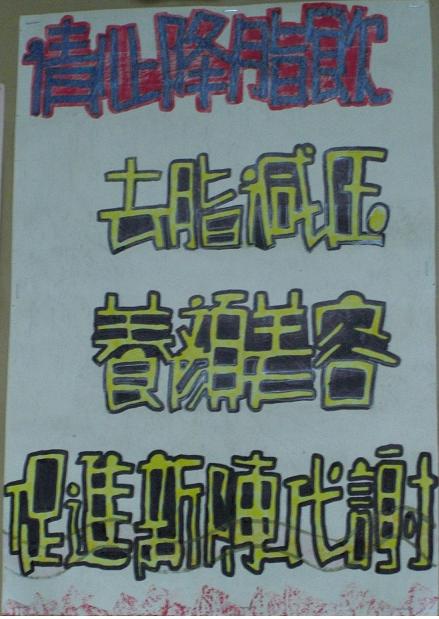 清心降脂飲
去脂減压
養顏美容
促進新陳代謝